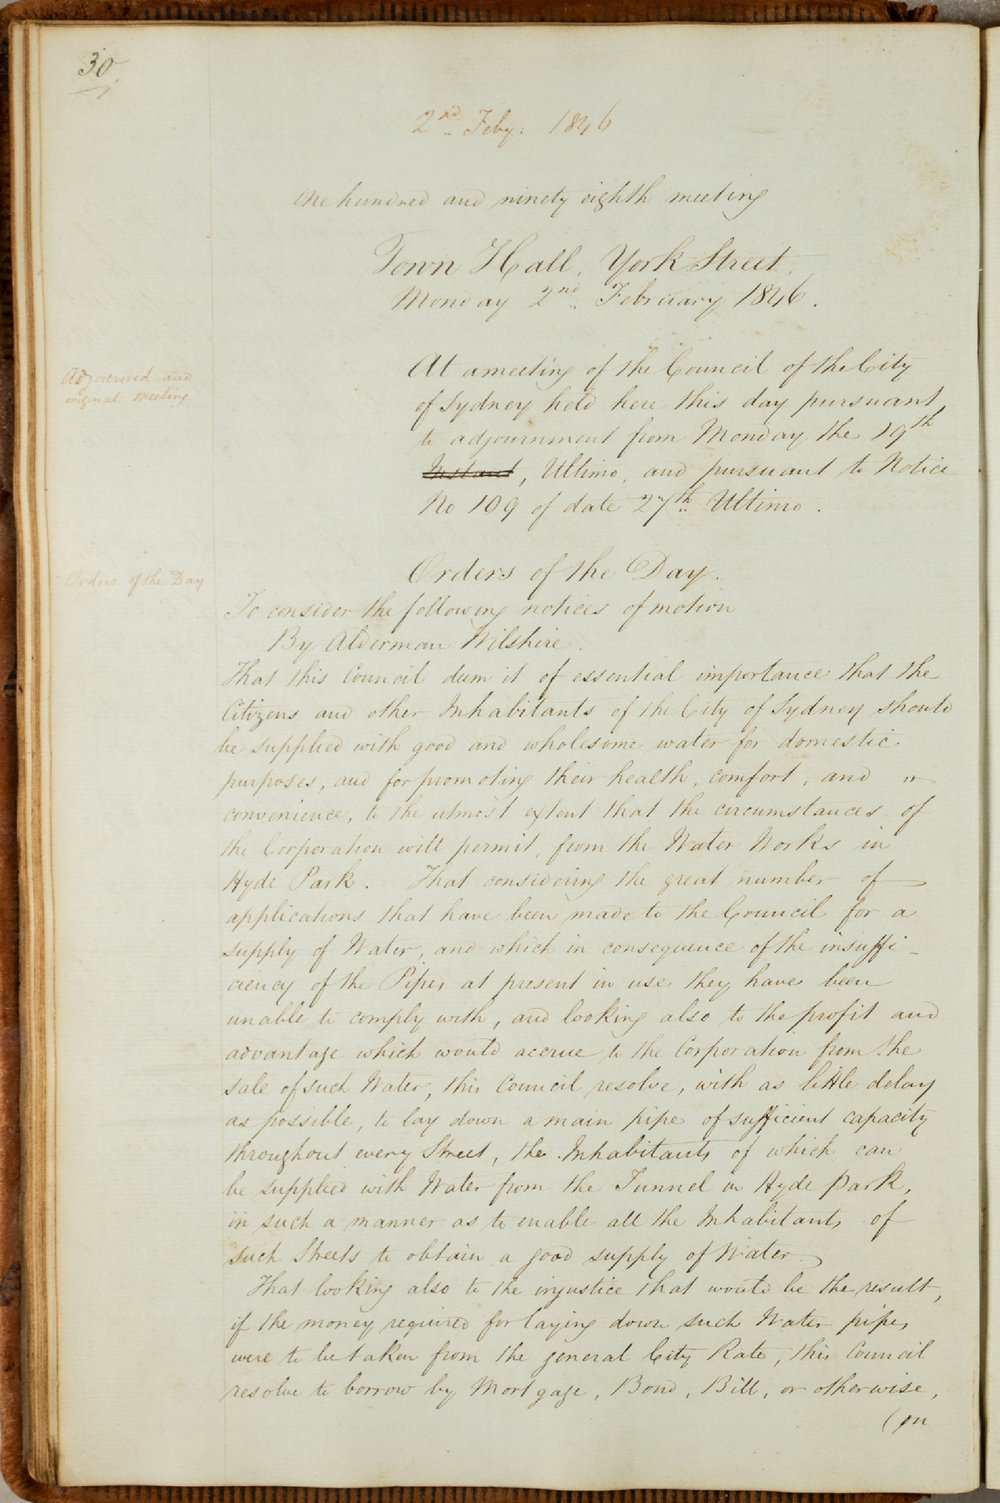 30
2nd Feby: 1846
One hundred and ninety eighth meeting
Town Hall, York Street,
Monday 2nd February 1846.
Adjourned and
original Meeting
At a meeting of the Council of the City
of Sydney held here this day pursuant
to adjournment from Monday the 19th
Instant, Ultimo, and pursuant to Notice
No 109 of date 27th Ultimo.
Orders of the Day
Orders of the Day.
To consider the following notices of motion
By Alderman Wilshire.
That this Council deem it of essential importance that the
Citizens and other Inhabitants of the City of Sydney should
be supplied with good and wholesome water for domestic
purposes, and for promoting their health, comfort, and
convenience, to the utmost extent that the circumstances of
the Corporation will permit, from the Water Works in
Hyde Park. That considering the great number of
applications that have been made to the Council for a
supply of Water, and which in consequence of the insuffi-
ciency of the Pipes at present in use they have been
unable to comply with, and looking also to the profit and
advantage which would accrue to the Corporation from the
sale of such Water, this Council resolve, with as little delay
as possible, to lay down a main pipe of sufficient capacity
throughout every Street, the Inhabitants of which can
be supplied with Water from the Tunnel in Hyde Park,
in such a manner as to enable all the Inhabitants of
such Streets to obtain a good supply of Water
That looking also to the injustice that would be the result,
if the money required for laying down such Water pipes
were to be taken from the general City Rate, this Council
resolve to borrow by Mortgage, Bond, Bill, or otherwise,
(on